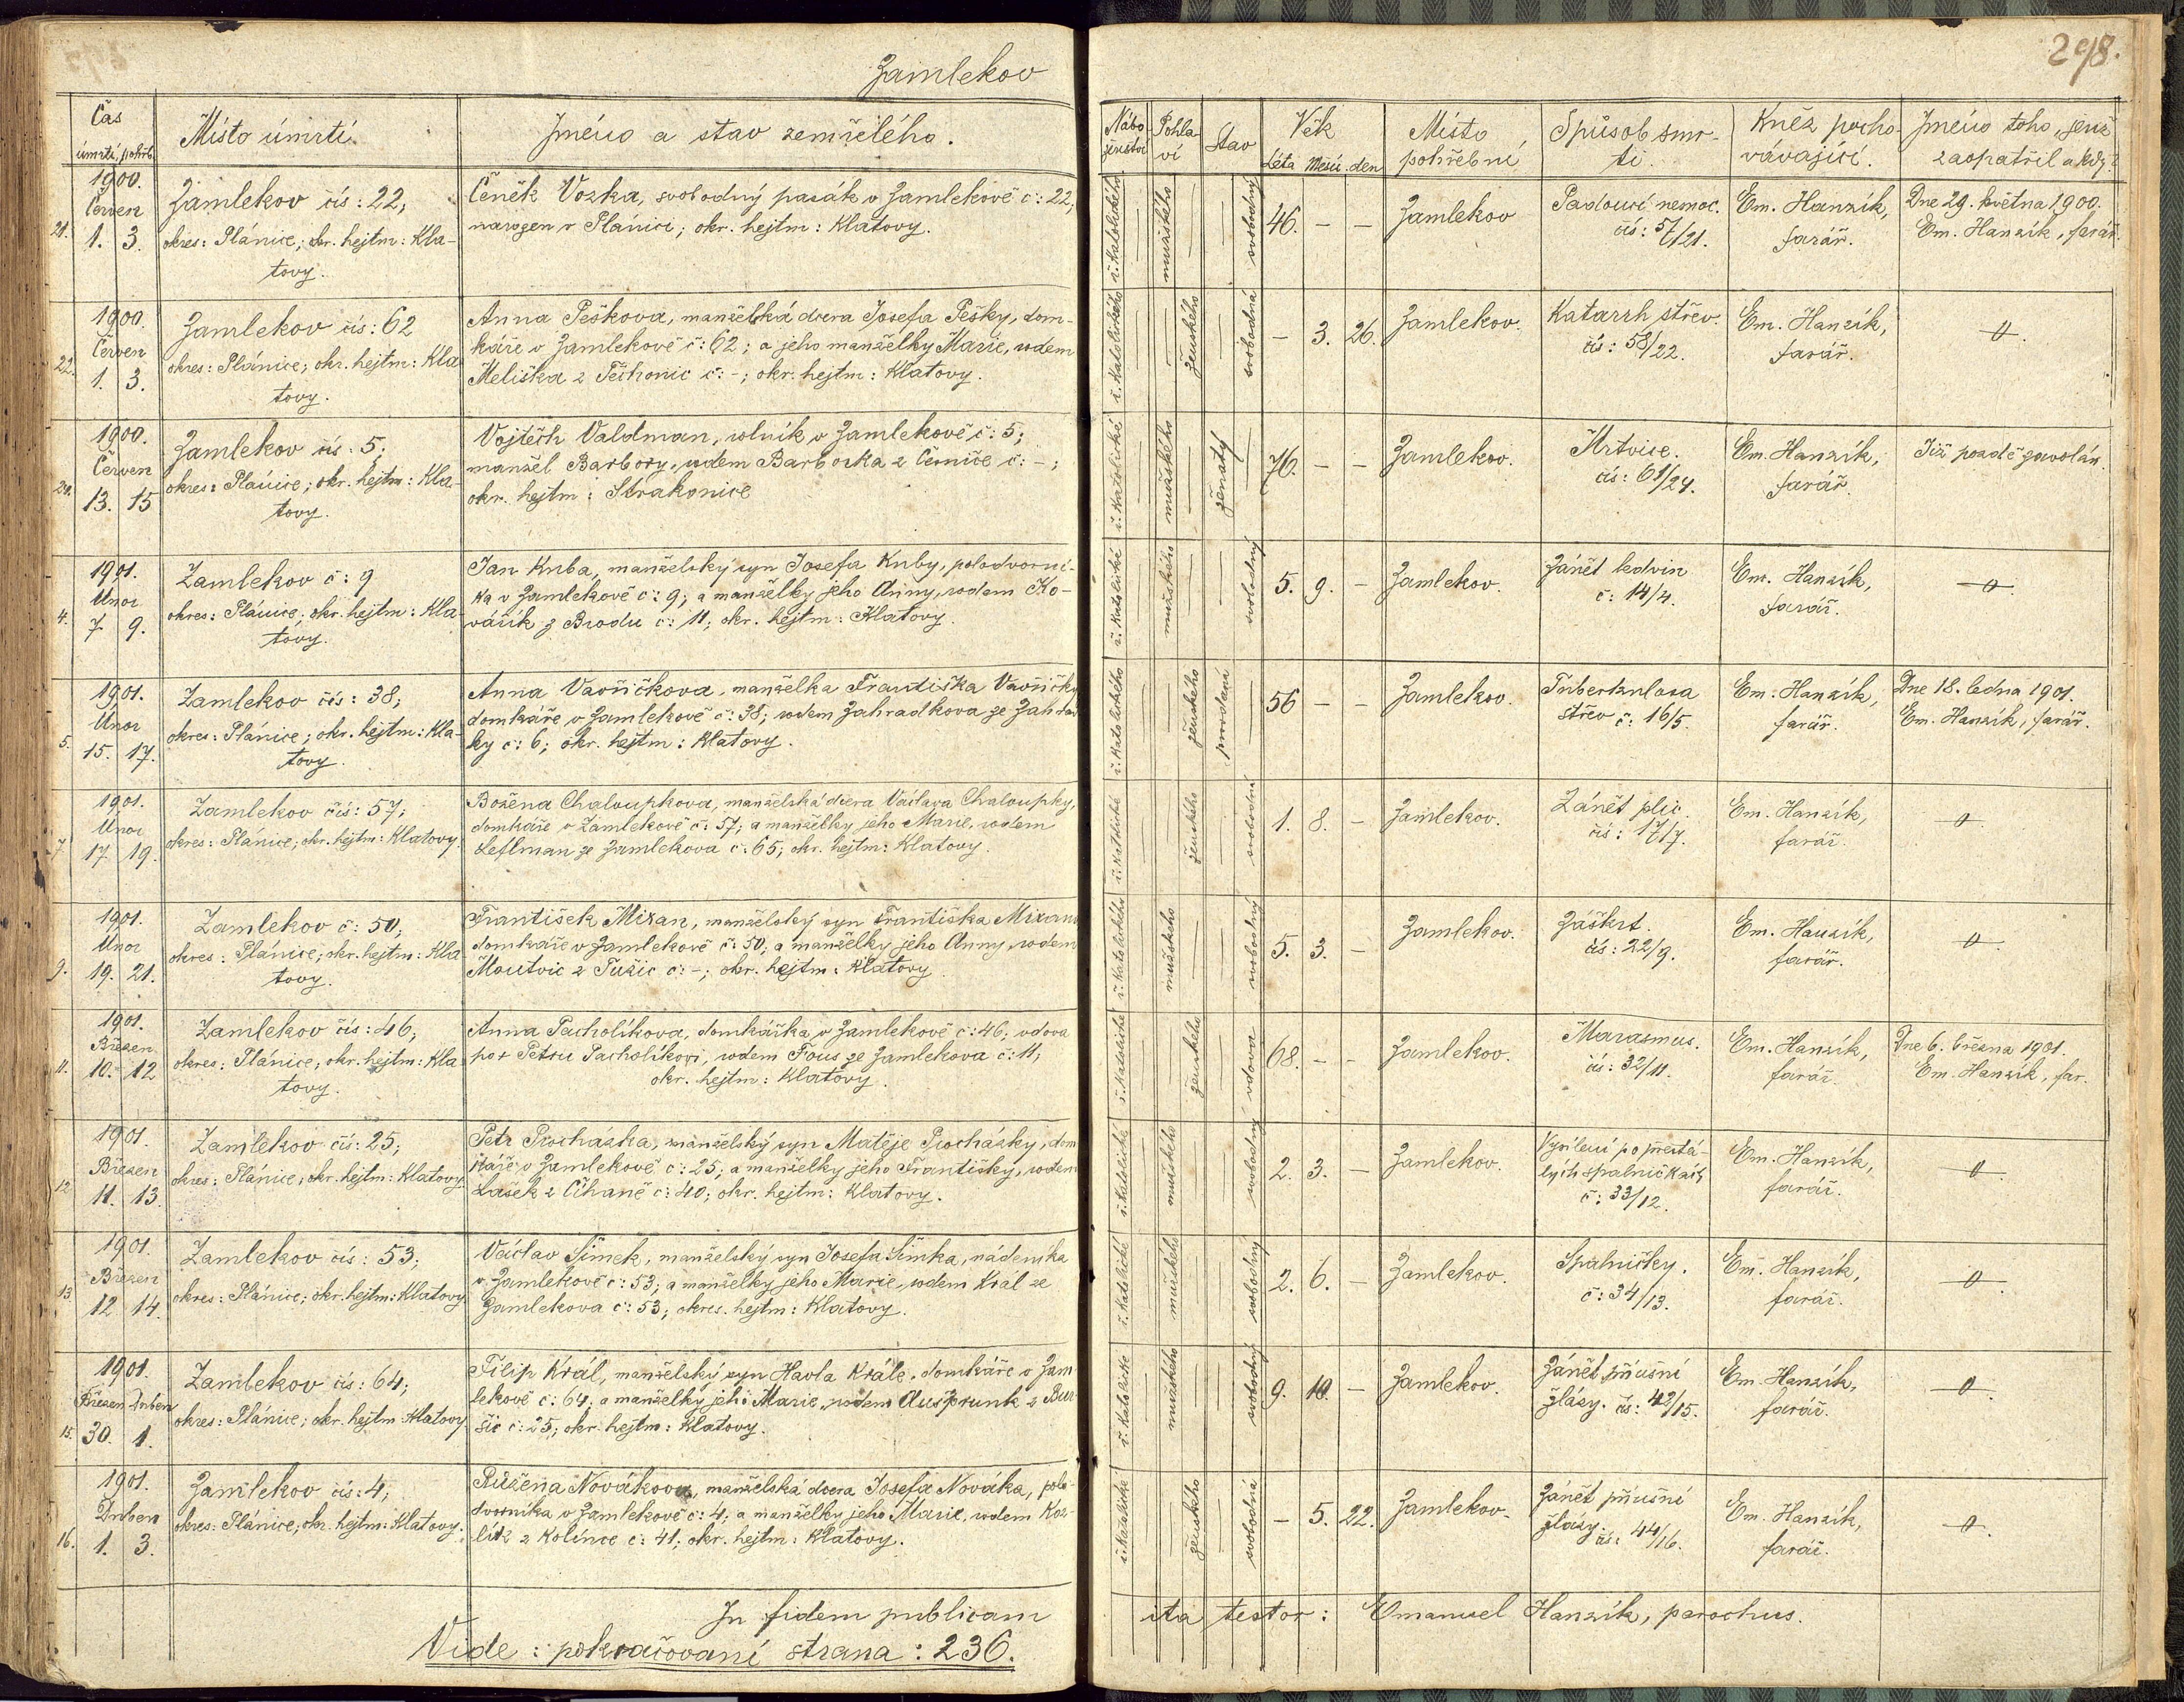 298.
Zamlekov
Čas
úmrtí, pohřb.
Místo úmrtí.
Jméno a stav zemřelého.
Nábo-
ženství
Pohla-
ví
Stav
Věk
Léta Měsíc. den
Místo
pohřební
Spůsob smr-
ti.
Kněz pocho-
vávající.
Jméno toho, jenž
zaopatřil a kdy?
21.
1900.
Červen
1. 3.
Zamlekov čís: 22;
okres: Plánice; okr. hejtm: Kla-
tovy.
Čeněk Vozka, svobodný pasák v Zamlekově č: 22;
narozen v Plánici; okr. hejtm: Klatovy.
ř. katolického
mužského
svobodný
46. – –
Zamlekov
Padoucí nemoc.
čís: 57/21.
Em. Hanzík,
farář.
Dne 29. května 1900.
Em. Hanzík, farář.
22.
1900.
Červen
1. 3.
Zamlekov čís: 62
okres: Plánice; okr. hejtm: Kla
tovy.
Anna Peškova, manželská dcera Josefa Pešky, dom-
káře v Zamlekově č: 62; a jeho manželky Marie, rodem
Meliška z Těchonic č: -; okr. hejtm: Klatovy.
ř. katolického
ženského
svobodná
– 3. 26.
Zamlekov.
Katarrh střev.
čís: 58/22.
Em. Hanzík,
farář.
0.
1900.
Červen
13. 15
Zamlekov čís: 5;
okres: Plánice; okr. hejtm: Kla-
tovy.
Vojtěch Valdman, rolník v Zamlekově č: 5;
manžel Barbory, rodem Barborka z Černíče č: -;
okr. hejtm: Strakonice
ř. katolické
mužského
ženatý
76. – –
Zamlekov.
Mrtvice.
čís: 61/24.
Em. Hanzík,
farář.
Již pozdě zavolán.
4.
1901.
Únor
7 9.
Zamlekov č: 9
okres: Plánice; okr. hejtm: Kla-
tovy.
Jan Kuba, manželský syn Josefa Kuby, polodvorní-
ka v Zamlekově č: 9; a manželky jeho Anny, rodem Ko-
vářík z Brodu č: 11; okr. hejtm: Klatovy.
ř. katolické
mužského
svobodný
5. 9. –
Zamlekov.
Zánět ledvin
č: 14/4.
Em. Hanzík,
farář.
0
5.
1901.
Únor
15. 17.
Zamlekov čís: 38;
okres: Plánice; okr. hejtm: Kla-
tovy.
Anna Vavřičkova, manželka Františka Vavřičky,
domkáře v Zamlekově č: 38; rodem Zahradkova ze Zahrád
ky č: 6; okr. hejtm: Klatovy.
ř. katolického
ženského
provdaná
56 – –
Zamlekov.
Tuberkulosa
střev č: 16/5.
Em. Hanzík,
farář.
Dne 18. ledna 1901.
Em. Hanzík, farář.
7.
1901.
Únor
17. 19.
Zamlekov čís: 57;
okres: Plánice; okr. hejtm: Klatovy.
Božena Chaloupkova, manželská dcera Václava Chaloupky,
domkáře v Zamlekově č: 57; a manželky jeho Marie, rodem
Leflman ze Zamlekova č: 65; okr. hejtm: Klatovy.
ř. katolické
ženského
svobodná
1. 8. –
Zamlekov.
Zánět plic.
čís: 17/7.
Em. Hanzík,
farář.
0.
9.
1901.
Únor
19. 21.
Zamlekov č: 50;
okres: Plánice; okr. hejtm: Kla
tovy.
František Mixan, manželský syn Františka Mixana
domkáře v Zamlekově č: 50; a manželky jeho Anny, rodem
Moutvic z Tužic č: -; okr. hejtm: Klatovy.
ř. katolického
mužského
svobodný
5. 3. –
Zamlekov.
Záškrt.
čís: 22/9.
Em. Hanzík,
farář.
0.
11.
1901.
Březen
10. 12
Zamlekov čís: 46;
okres: Plánice; okr. hejtm: Kla
tovy.
Anna Pacholíkova, domkářka v Zamlekově č: 46; vdova
po + Petru Pacholíkovi, rodem Fous ze Zamlekova č: 11;
okr. hejtm: Klatovy.
ř. katolické
ženského
vdova
68. – –
Zamlekov.
Marasmus.
čís: 32/11.
Em. Hanzík,
farář.
Dne 6. března 1901.
Em. Hanzík, far.
12
1901.
Březen
11. 13.
Zamlekov čís: 25;
okres: Plánice; okr. hejtm: Klatovy.
Petr Procházka, manželský syn Matěje Procházky, dom
káře v Zamlekově č: 25; a manželky jeho Františky, rodem
Lašek z Číhaně č: 40; okr. hejtm: Klatovy.
ř. katolické
mužského
svobodný
2. 3. –
Zamlekov.
Vysílení po přestá-
lých spalničkách
č: 33/12.
Em. Hanzík,
farář.
0
13
1901.
Březen
12 14.
Zamlekov čís: 53;
okres: Plánice; okr. hejtm: Klatovy.
Václav Šimek, manželský syn Josefa Šimka, nádeníka
v Zamlekově č: 53; a manželky jeho Marie, rodem Král ze
Zamlekova č: 53; okres. hejtm: Klatovy.
ř. katolické
mužského
svobodný
2. 6. –
Zamlekov.
Spalničky.
č: 34/13.
Em. Hanzík,
farář.
0.
15.
1901.
Březen Duben
30. 1.
Zamlekov čís: 64;
okres: Plánice; okr. hejtm: Klatovy.
Filip Král, manželský syn Havla Krále, domkáře v Zam
lekově č: 64; a manželky jeho Marie, rodem Aušprunk z
šic č: 25; okr. hejtm: Klatovy.
ř. katolické
mužského
svobodný
9. 10. –
Zamlekov.
Zánět příušní
žlázy. čís: 42/15.
Em. Hanzík,
farář.
0.
16.
1901.
Duben
1. 3.
Zamlekov čís: 4;
okres: Plánice; okr. hejtm: Klatovy.
Růžena Novákova, manželská dcera Josefa Nováka, polo-
dvorníka v Zamlekově č: 4; a manželky jeho Marie, rodem Koz
lík z Kolince č: 41; okr. hejtm: Klatovy.
ř. katolické
ženského
svobodná
– 5. 22.
Zamlekov.
Zánět příušní
žlázy. čís: 44/16.
Em. Hanzík,
farář.
0.
In fidem publicam
ita testor: Emanuel Hanzík, parochus.
Vide: pokračovaní strana: 236.